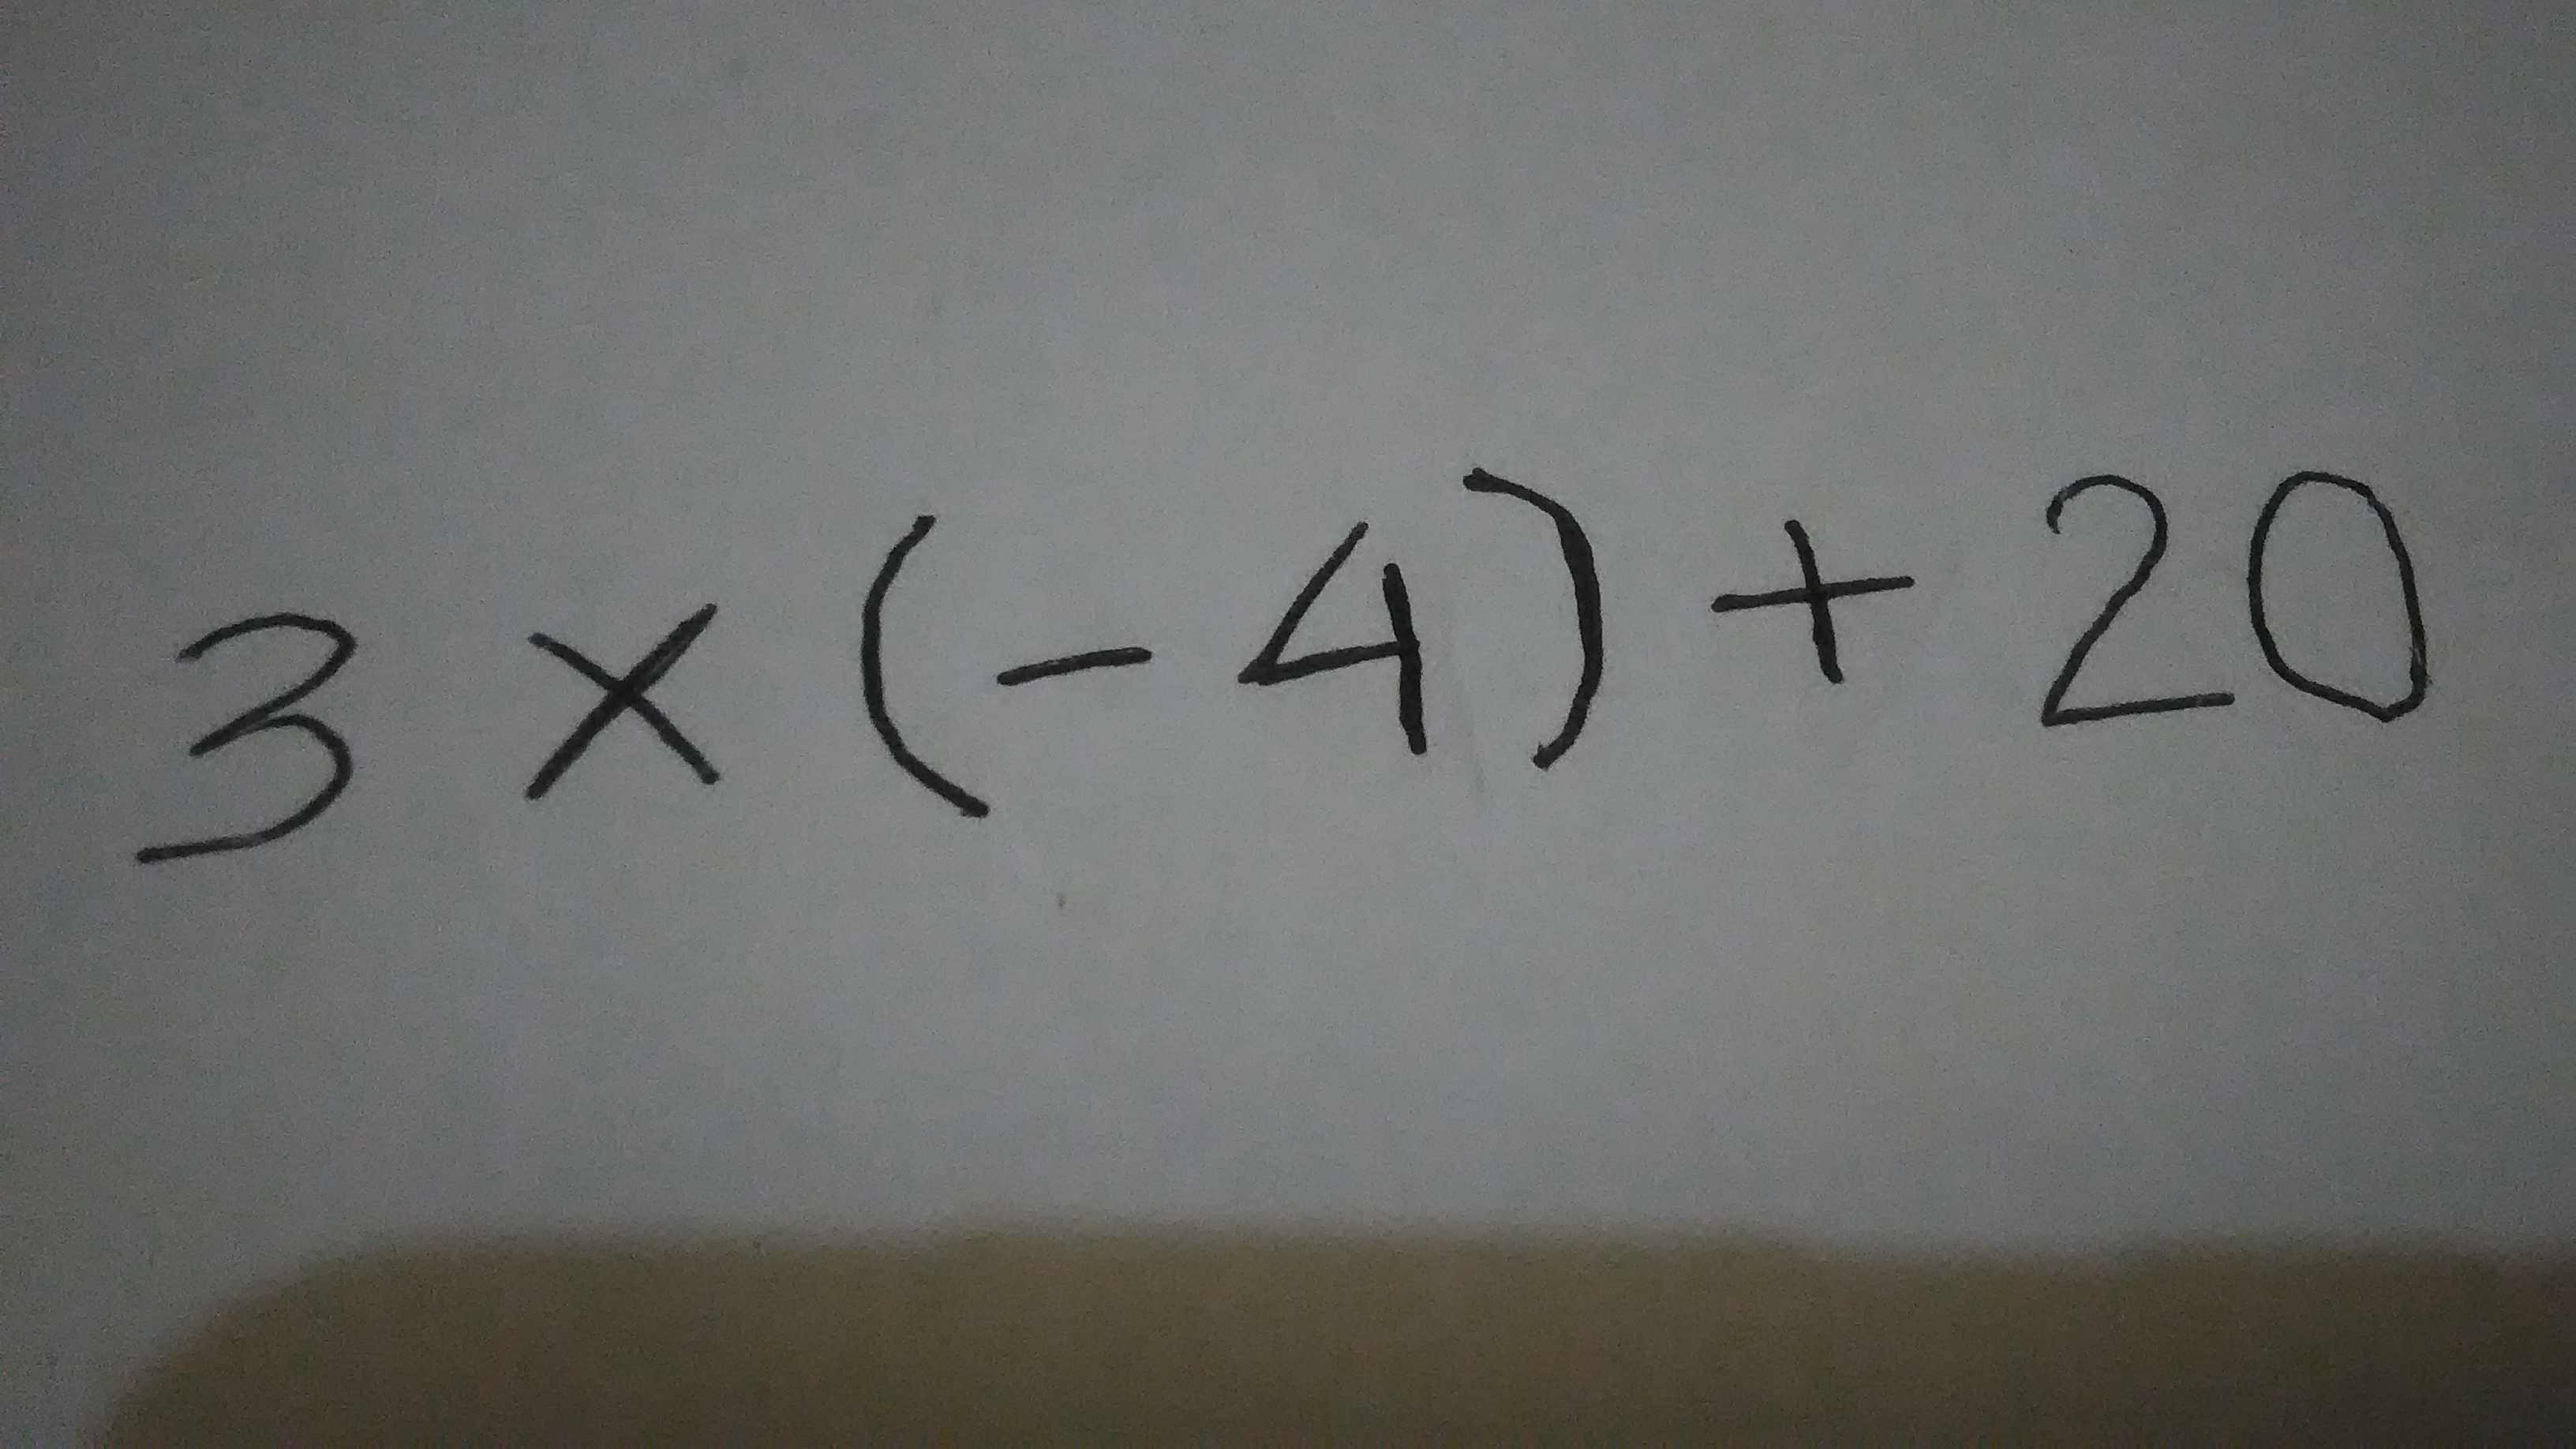 3 × (-4) + 20